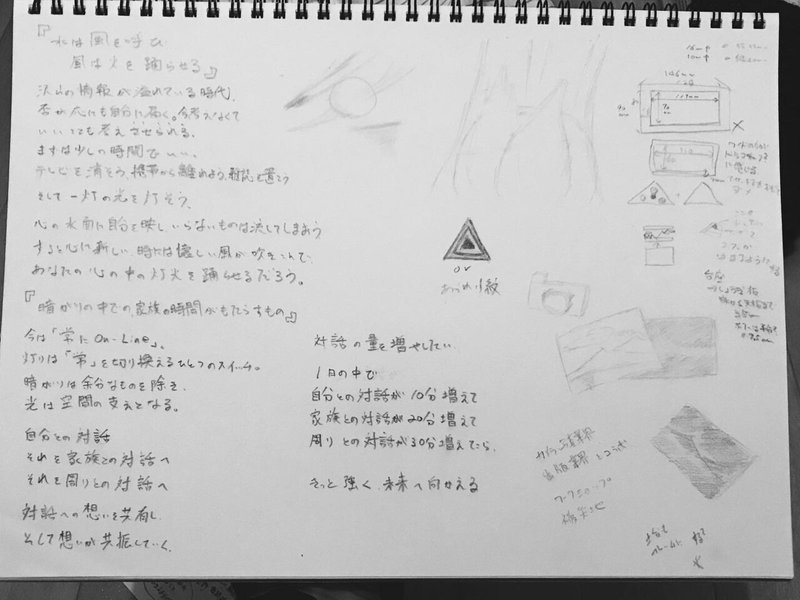 『水は風を呼び
風は火を踊らせる』
沢山の情報が溢れている時代。
否が応にも自分に届く。今考えなくて
いいことも考えさせられる。
まずは少しの時間でいい、
テレビを消そう、携帯から離れよう、雑誌を置こう
そして一灯の光を灯そう。
心の水面に自分を映し、いらないものは流してしまおう
すると心に新しい、時には懐しい風が吹きこんで、
あなたの心の中の灯火を踊らせるだろう。
『暗がりの中での、家族の時間がもたらすもの』
今は「常に On-Line」。
灯りは「常」を切り換えるひとつのスイッチ。
暗がりは余分なものを除き、
光は空間の支えとなる。
自分との対話
それを家族との対話へ
それを周りとの対話へ
対話への想いを共有し
そして想いが共振していく。
対話の量を増やしたい
1日の中で
自分との対話が10分増えて
家族との対話が20分増えて
周りとの対話が30分増えたら、
きっと強く、未来へ向かえる
or
146mm
カメラ・写真業界
出版業界 とコラボ
ワークショップ
台座